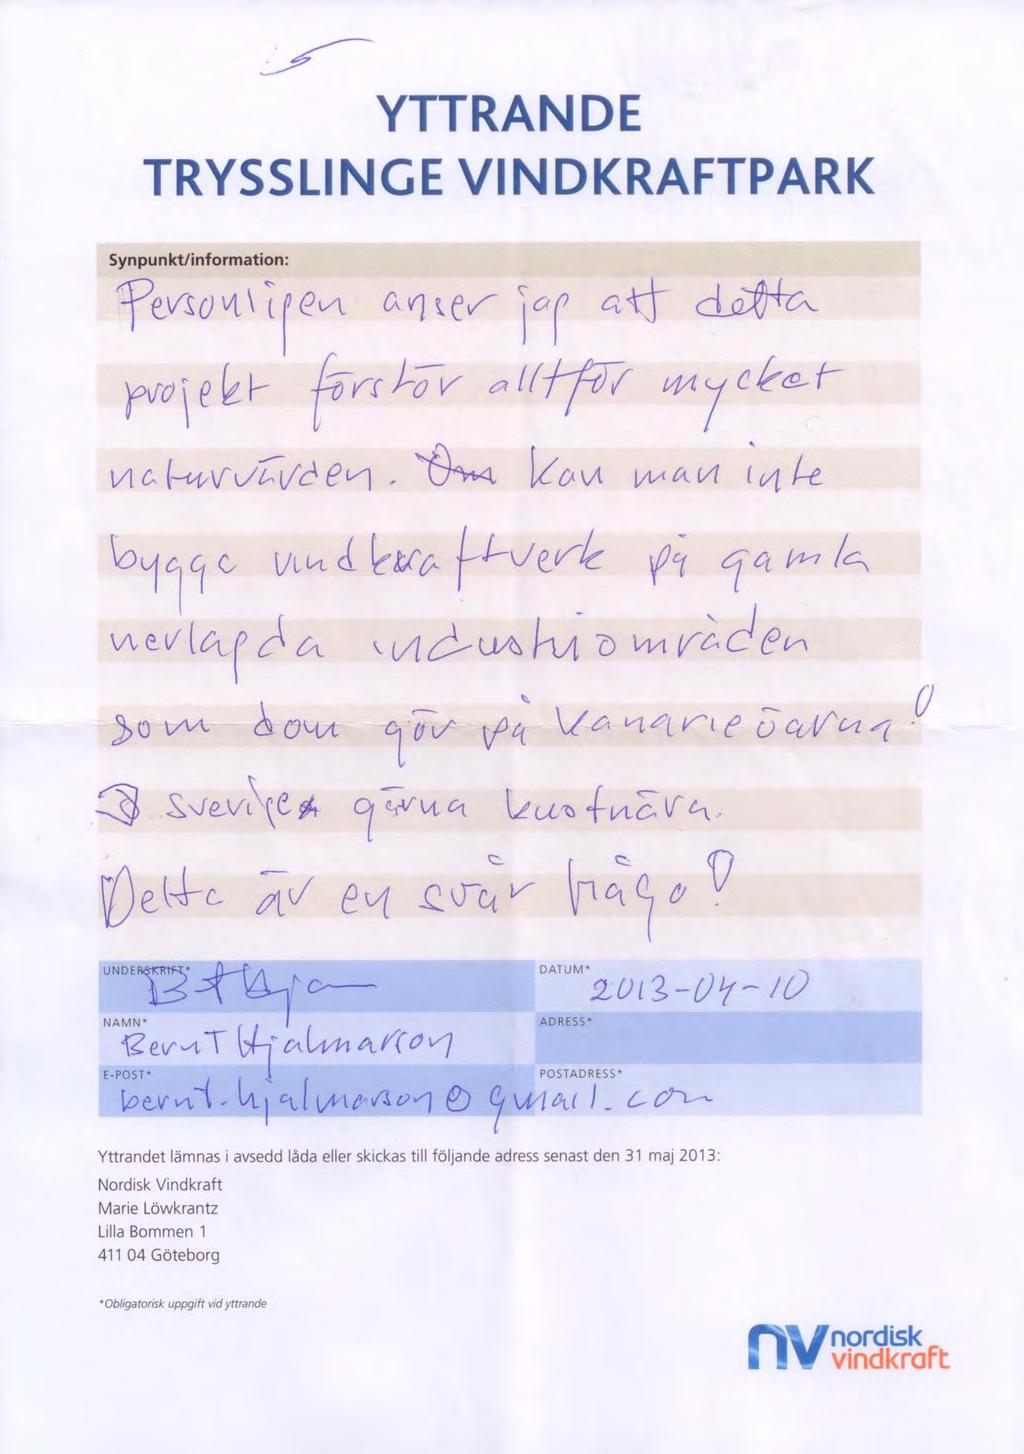 5
YTTRANDE
TRYSSLINGE VINDKRAFTPARK
Synpunkt/information:
Personligen anser jag att detta
projekt förstör alltför mycket
naturvärden. Om kan man inte
bygga vindkraftverk på gamla
nerlagda industriområden
som dom gör på Kanarieöarna!
I Sverige gärna kustnära.
Detta är en svår fråga!
UNDERSKRIFT*
DATUM*
2013-04-10
NAMN*
Bernt Hjalmarson
ADRESS*
E-POST*
bernt.hjalmarson@gmail.com
POSTADRESS*
Yttrandet lämnas i avsedd låda eller skickas till följande adress senast den 31 maj 2013:
Nordisk Vindkraft
Marie Löwkrantz
Lilla Bommen 1
411 04 Göteborg
*Obligatorisk uppgift vid yttrande
nv nordisk
vindkraft